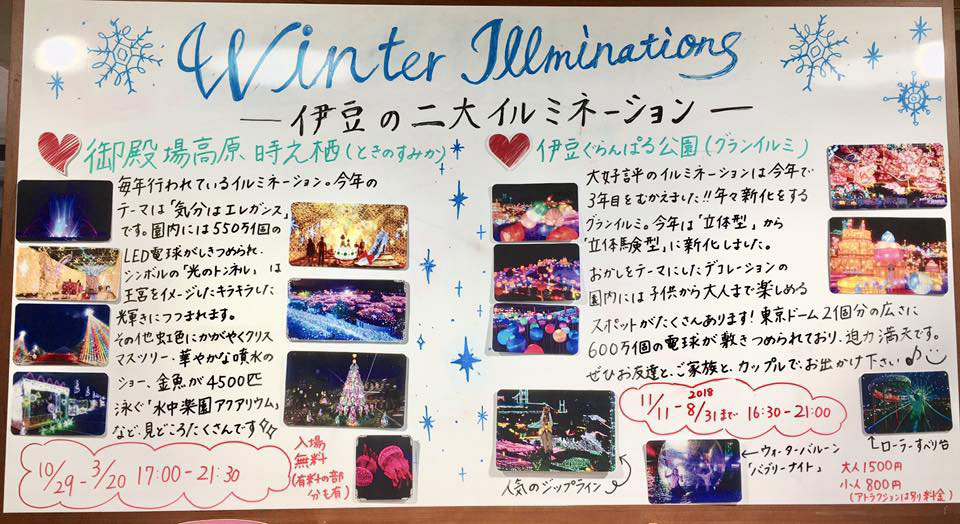 Winter Illminations
―伊豆の二大イルミネーション―
御殿場高原 時之栖(ときのすみか)
毎年行われているイルミネーション。今年の
テーマは「気分はエレガンス」
です。園内には550万個の
LED電球がしきつめられ、
シンボルの「光のトンネル」は
王宮をイメージしたキラキラした
輝きにつつまれます。
その他虹色にかがやくクリス
マスツリー・華やかな噴水の
ショー、金魚が4500匹
泳ぐ「水中楽園アクアリウム」
など、見どころたくさんです
10/29-3/20 17:00-21:30
入場
無料
(有料の部
分も有)
伊豆ぐらんぱる公園(グランイルミ)
大好評のイルミネーションは今年で
3年目をむかえました!!年々新化をする
グランイルミ。今年は「立体型」から
「立体験型」に新化しました。
おかしをテーマにしたデコレーションの
園内には子供から大人まで楽しめる
スポットがたくさんあります!東京ドーム2個分の広さに
600万個の電球が敷きつめられており、迫力満天です。
ぜひお友達と、ご家族と、カップルでお出かけ下さい♪
11/11-2018 8/31まで 16:30-21:00
人気のジップライン
←ウォーターバルーン
「バブリーナイト」
ローラーすべり台
大人1500円
小人800円
(アトラクションは別り料金)